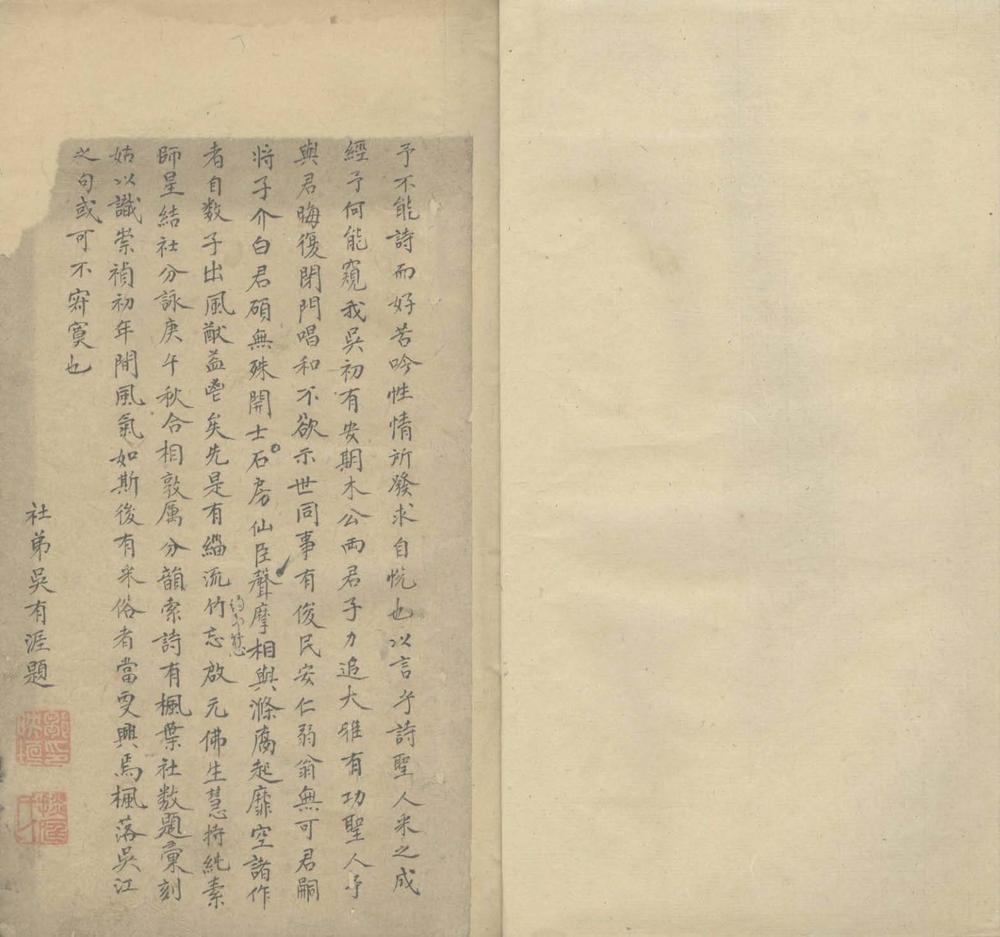 予不能詩而好苦吟性情所發求自悅也以言乎詩聖人采之成
經予何能窺我吳初有安期木公兩君子力追大雅有功聖人予
與君晦復閉門唱和不欲示世同事有俊民安仁弱翁無可君嗣
将子介白君碩無殊開士石房仙臣聲摩相與滌腐起靡空諸作
者自数子出風猷益暢矣先是有緇流竹忘啟元佛生慧持純素
師星結社分詠庚午秋合相敦厲分韻索詩有楓葉社数題彙刻
姑以識崇禎初年間風氣如斯後有采俗者當更興焉楓落吳江
之句或可不寂寞也
社弟吳有涯題